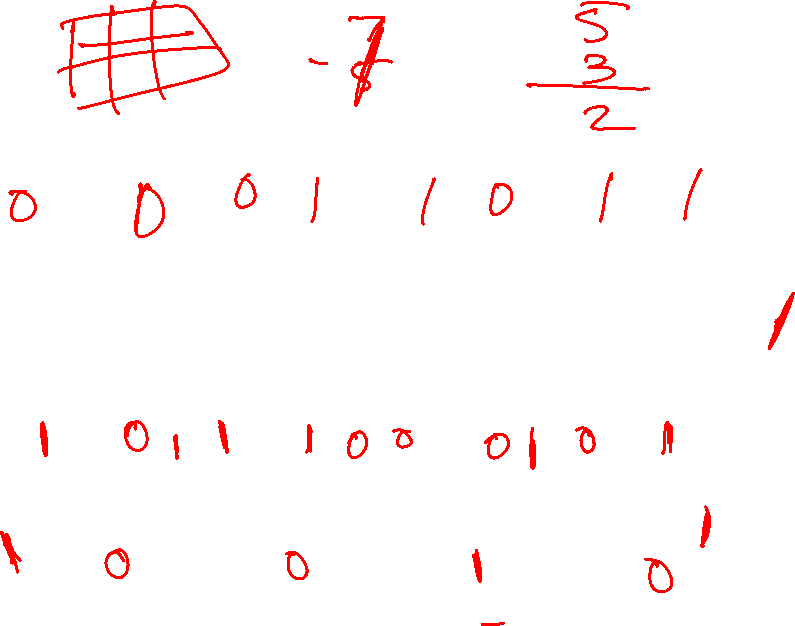 5
3
2
0 0 0 1 1 0 1 1
1
1 0 1 1 1 0 0 0 1 0 1
1 0 0 1 0 1